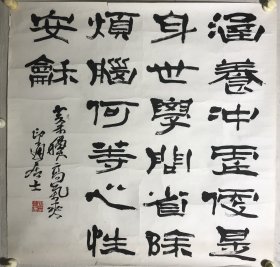 涵養冲虛便是
身世學問省除
煩腦何等心性
安龢
印通居士